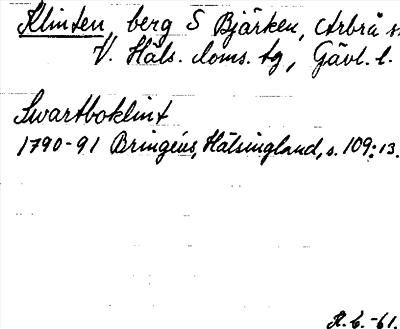 Klinten, berg S Bjärken, Arbrå s.
V. Häls. doms. tg, Gävl. l.
Swartboklint
1790-91 Bringéus, Hälsingland, s. 109:13.
R. C. -61.